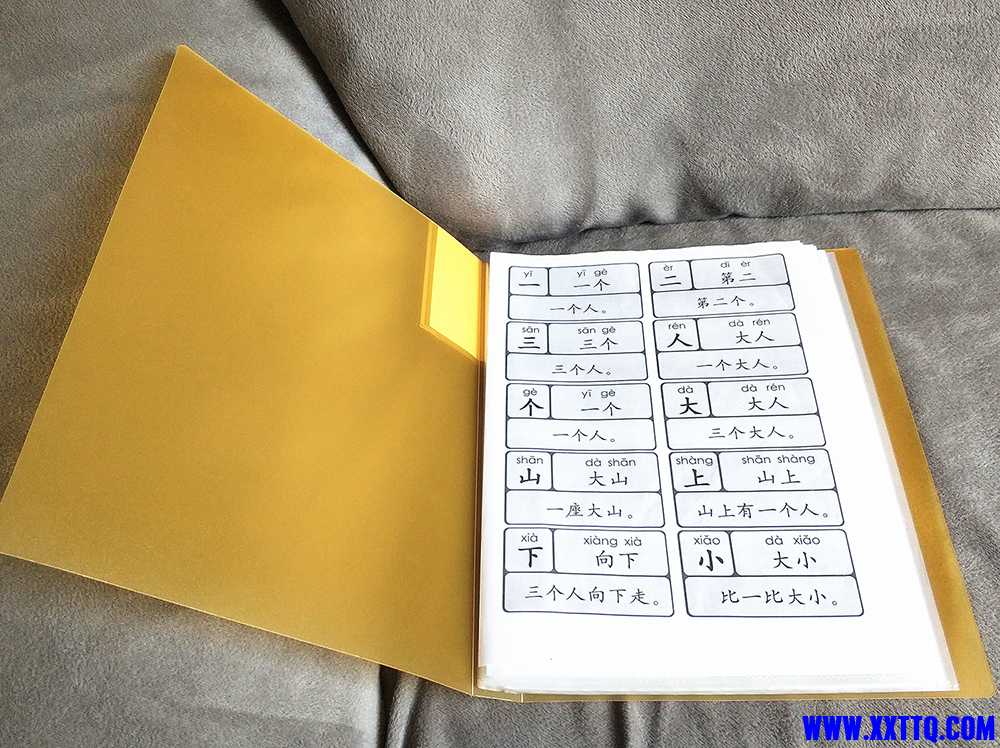 yī yī gè
一 一个
一个人。
èr dì èr
二 第二
第二个。
sān sān gè
三 三个
三个人。
rén dà rén
人 大人
一个大人。
gè yī gè
个 一个
一个人。
dà dà rén
大 大人
三个大人。
shān dà shān
山 大山
一座大山。
shàng shān shàng
上 山上
山上有一个人。
xià xiàng xià
下 向下
三个人向下走。
xiǎo dà xiǎo
小 大小
比一比大小。
WWW.XXTTQ.COM